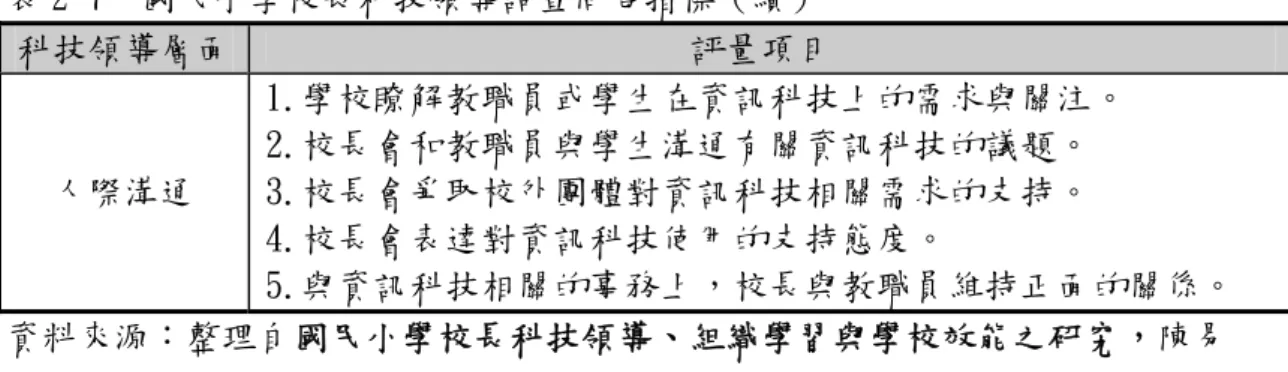 科技領導層面 評量項目
人際溝通
1.學校瞭解教職員或學生在資訊科技上的需求與關注。
2.校長會和教職員與學生溝通有關資訊科技的議題。
3.校長會爭取校外團體對資訊科技相關需求的支持。
4.校長會表達對資訊科技使用的支持態度。
5.與資訊科技相關的事務上，校長與教職員維持正面的關係。
資料來源：整理自國民小學校長科技領導、組織學習與學校效能之研究，陳易